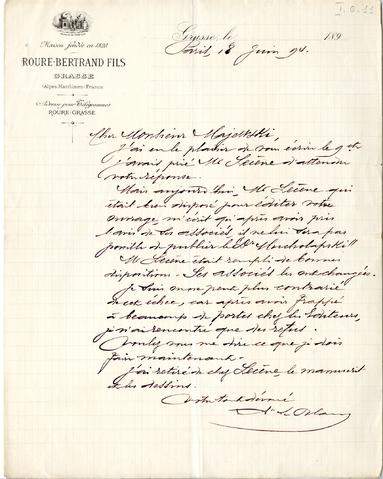 I.6.11
Maison fondée en 1820
ROURE-BERTRAND FILS
GRASSE
(Alpes-Maritimes) France
Adresse pour Télégrammes
ROURE-GRASSE
Grasse, le 189
Paris, 18 Juin 94.
Cher Monsieur
J'ai eu le plaisir de vous écrire le 9 et
j'avais prié Mr Lecène d'attendre
votre réponse.
Mais aujourd'hui, Mr Lecène qui
était bien disposé pour éditer votre
ouvrage, m'écrit qu'après avoir pris
l'avis de ses associés il ne lui sera pas
possible de publier le
Mr Lecène était rempli de bonnes
dispositions. Ses associés les ont changées.
Je suis on ne peut plus contrarié
de cet échec, car après avoir frappé
à beaucoup de portes chez les Editeurs,
je n'ai rencontré que des refus.
Voulez vous me dire ce que je dois
faire maintenant.
J'ai retiré de chez Lecène, le manuscrit
et les dessins.
Votre tout dévoué